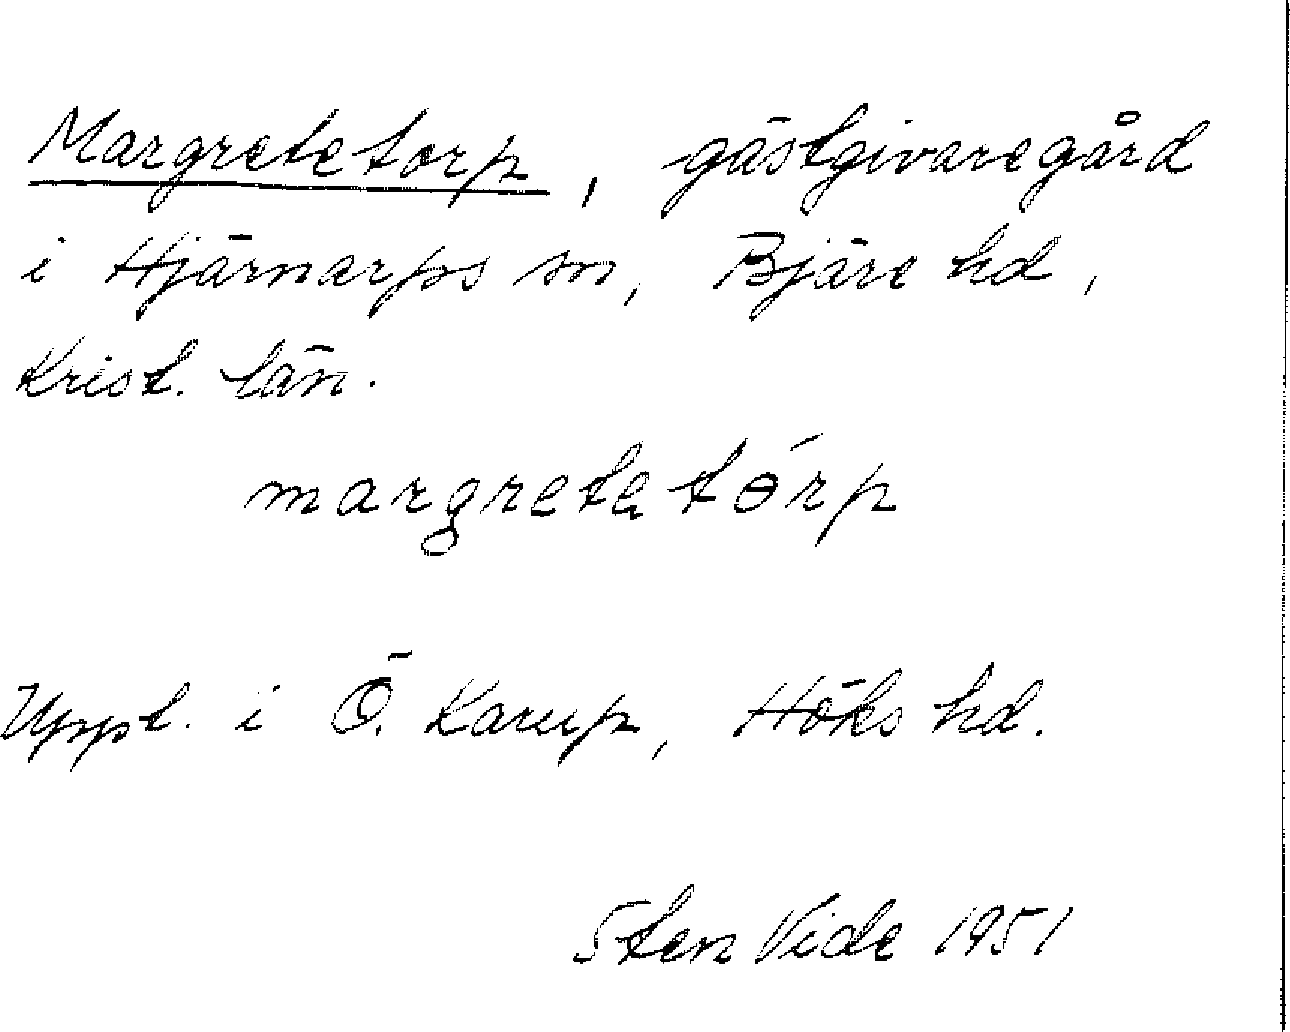 Margretetorp, gästgivaregård
i Hjärnarps sn, Bjäre hd,
Krist. län.
margretetórp
Uppt. i Ö. Karup, Höks hd.
Sten Vide 1951